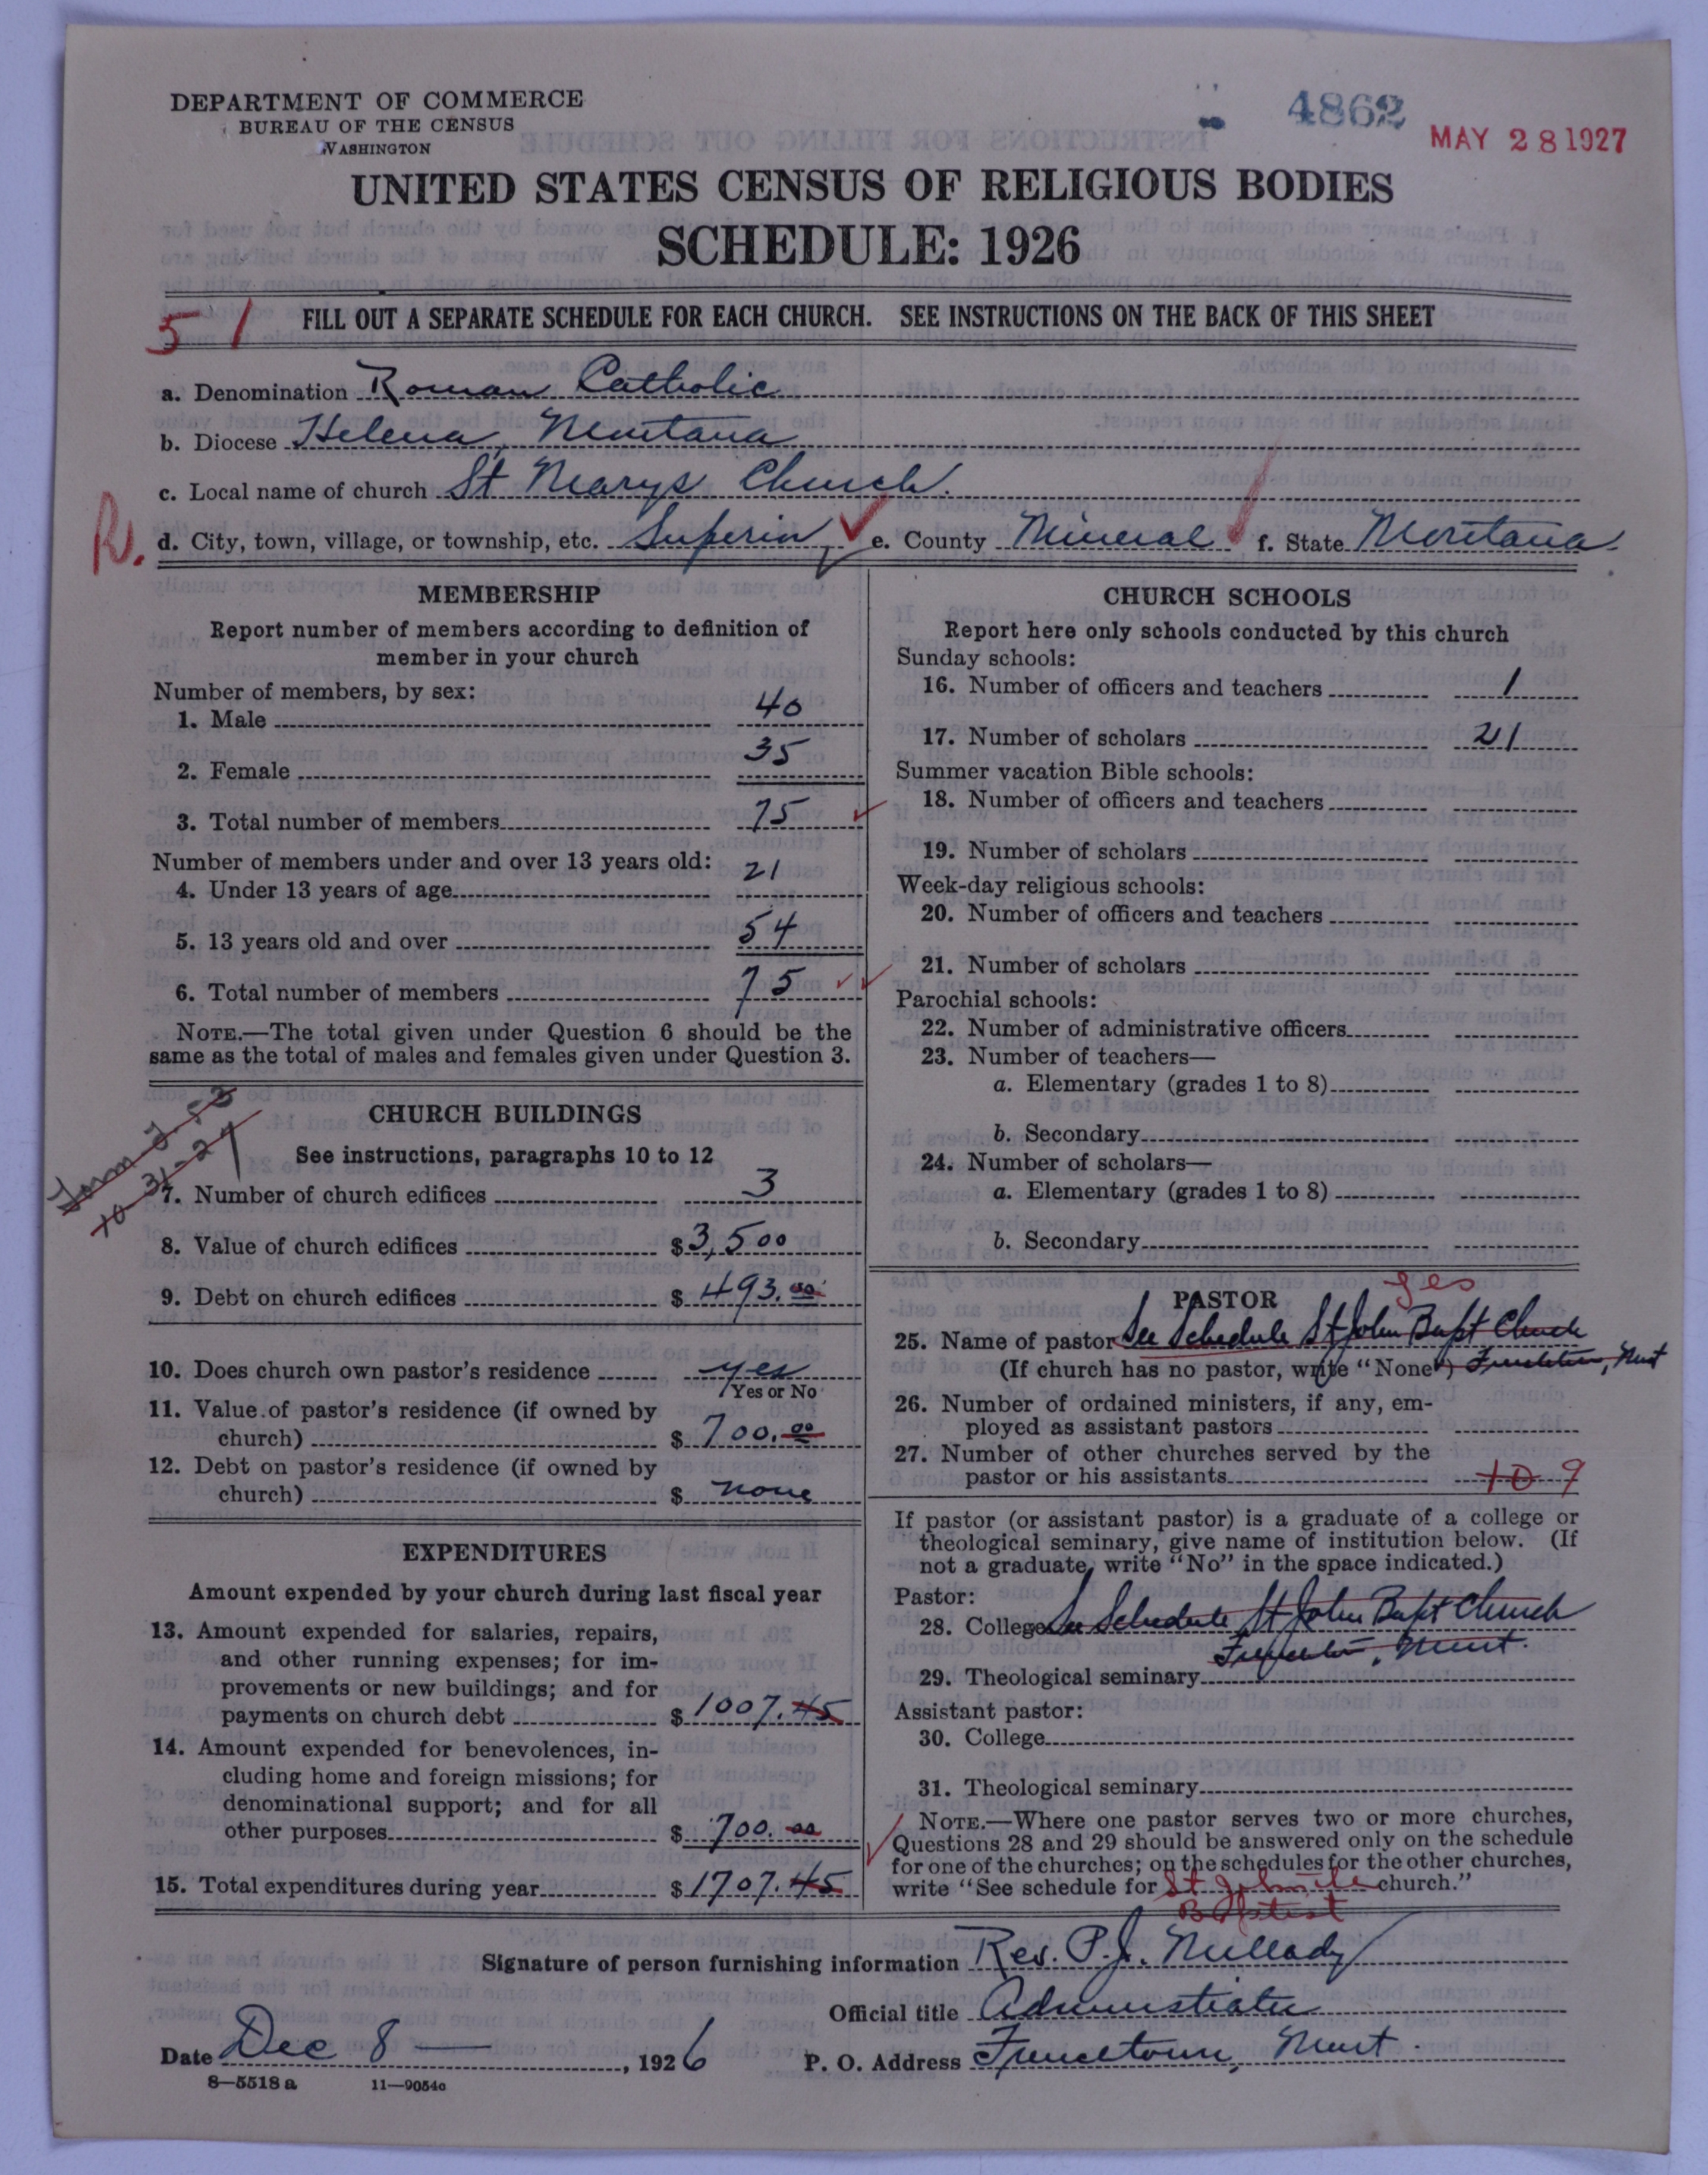 DEPARTMENT OF COMMERCE
BUREAU OF THE CENSUS
WASHINGTON
4862
MAY 28 1927
UNITED STATES CENSUS OF RELIGIOUS BODIES
SCHEDULE: 1926
51
FILL OUT A SEPARATE SCHEDULE FOR EACH CHURCH. SEE INSTRUCTIONS ON THE BACK OF THIS SHEET
a. Denomination Roman Catholic
b. Diocese Helena, Montana
c. Local name of church St Marys Church.
R.
d. City, town, village, or township, etc. Superior e. County Mineral f. State Montana
MEMBERSHIP
Report number of members according to definition of
member in your church
Number of members, by sex:
1. Male 40
2. Female 35
3. Total number of members 75
Number of members under and over 13 years old:
4. Under 13 years of age 21
5. 13 years old and over 54
6. Total number of members 75
NOTE.—The total given under Question 6 should be the
same as the total of males and females given under Question 3.
CHURCH BUILDINGS
See instructions, paragraphs 10 to 12
10-31-27
7. Number of church edifices 3
8. Value of church edifices $3,500
9. Debt on church edifices $ 493.00
10. Does church own pastor's residence yes
Yes or No
11. Value of pastor's residence (if owned by
church) $ 700.00
12. Debt on pastor's residence (if owned by
church) $ none
EXPENDITURES
Amount expended by your church during last fiscal year
13. Amount expended for salaries, repairs,
and other running expenses; for im-
provements or new buildings; and for
payments on church debt $ 1007.45
14. Amount expended for benevolences, in-
cluding home and foreign missions; for
denominational support; and for all
other purposes $ 700.00
15. Total expenditures during year $ 1707.45
CHURCH SCHOOLS
Report here only schools conducted by this church
Sunday schools:
16. Number of officers and teachers 1
17. Number of scholars 21
Summer vacation Bible schools:
18. Number of officers and teachers
19. Number of scholars
Week-day religious schools:
20. Number of officers and teachers
21. Number of scholars
Parochial schools:
22. Number of administrative officers
23. Number of teachers—
a. Elementary (grades 1 to 8)
b. Secondary
24. Number of scholars—
a. Elementary (grades 1 to 8)
b. Secondary
yes
PASTOR
25. Name of pastor See Schedule St John Bapt Church
(If church has no pastor, write "None") Frenchtown, Mont
26. Number of ordained ministers, if any, em-
ployed as assistant pastors
27. Number of other churches served by the
pastor or his assistants 10 9
If pastor (or assistant pastor) is a graduate of a college or
theological seminary, give name of institution below. (If
not a graduate, write "No" in the space indicated.)
Pastor:
28. College See Schedule St John Bapt Church
Frenchtown, Mont.
29. Theological seminary
Assistant pastor:
30. College
31. Theological seminary
NOTE.—Where one pastor serves two or more churches,
Questions 28 and 29 should be answered only on the schedule
for one of the churches; on the schedules for the other churches,
write "See schedule for St. John the church."
Baptist
Signature of person furnishing information Rev. P.J. Nellady
Official title Administrator
Date Dec 8 —, 1926
P. O. Address Frenchtown, Mont.
8—5518 a 11—9054c